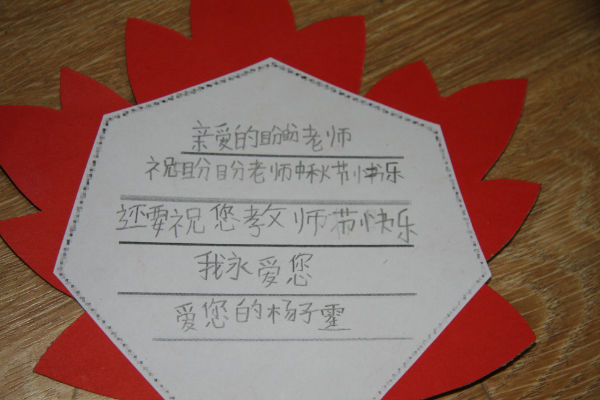 亲爱的盼盼老师
祝盼盼老师中秋节快乐
还要祝您教师节快乐
我永爱您
爱您的杨予霏